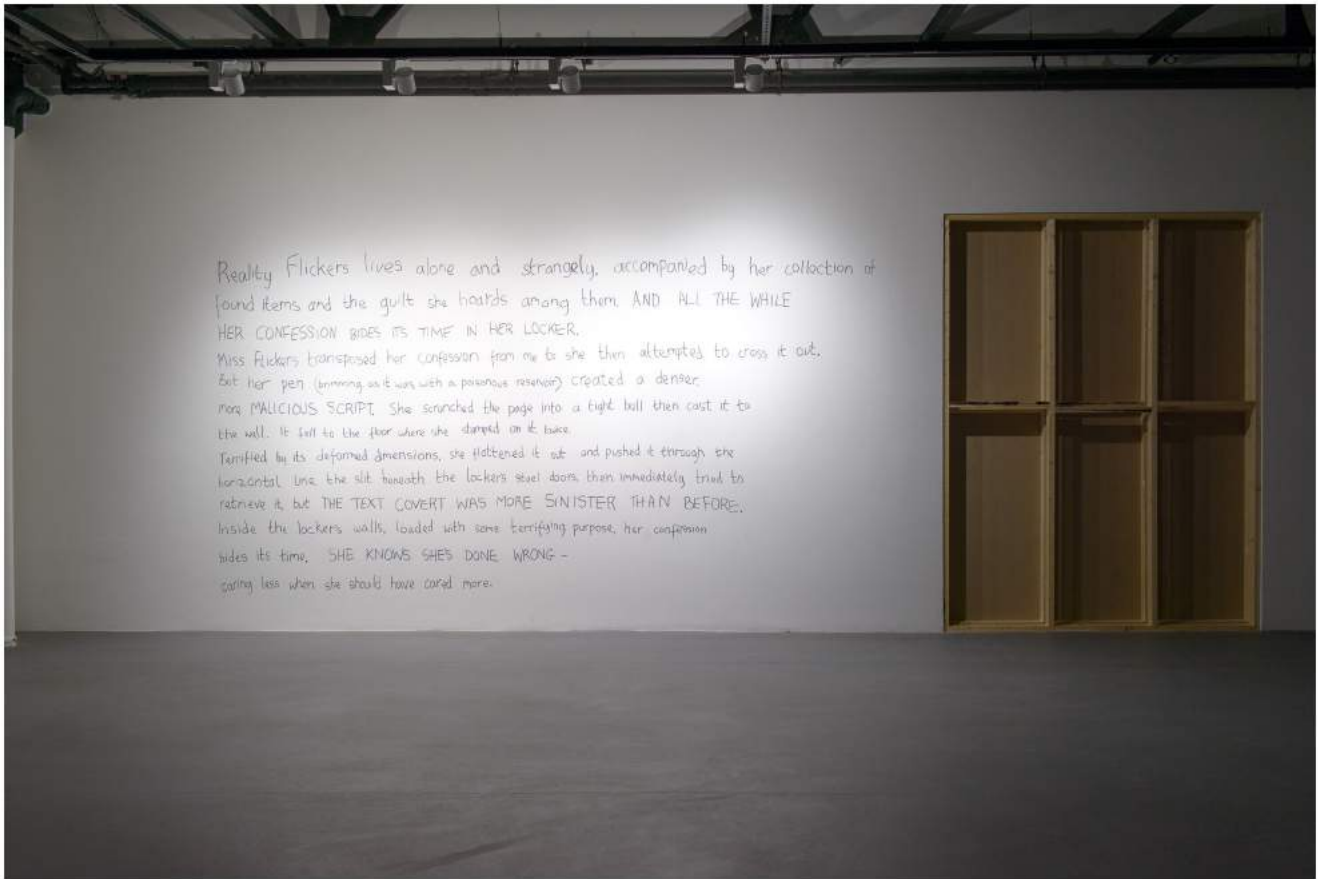 Reality Flickers lives alone and strangely, accompanied by her collection of
found items and the guilt she hoards among them. AND ALL THE WHILE
HER CONFESSION BIDES ITS TIME IN HER LOCKER.
Miss Flickers transposed her confession from me to she then attempted to cross it out.
But her pen (brimming as it was with a poisonous reservoir) created a denser,
more MALICIOUS SCRIPT. She scrunched the page into a tight ball then cast it to
the wall. It fell to the floor where she stamped on it twice.
Terrified by its deformed dimensions, she flattened it out and pushed it through the
horizontal line the slit beneath the lockers steel doors, then immediately tried to
retrieve it, but THE TEXT COVERT WAS MORE SINISTER THAN BEFORE.
Inside the lockers walls, loaded with some terrifying purpose, her confession
bides its time. SHE KNOWS SHE'S DONE WRONG –
caring less when she should have cared more.